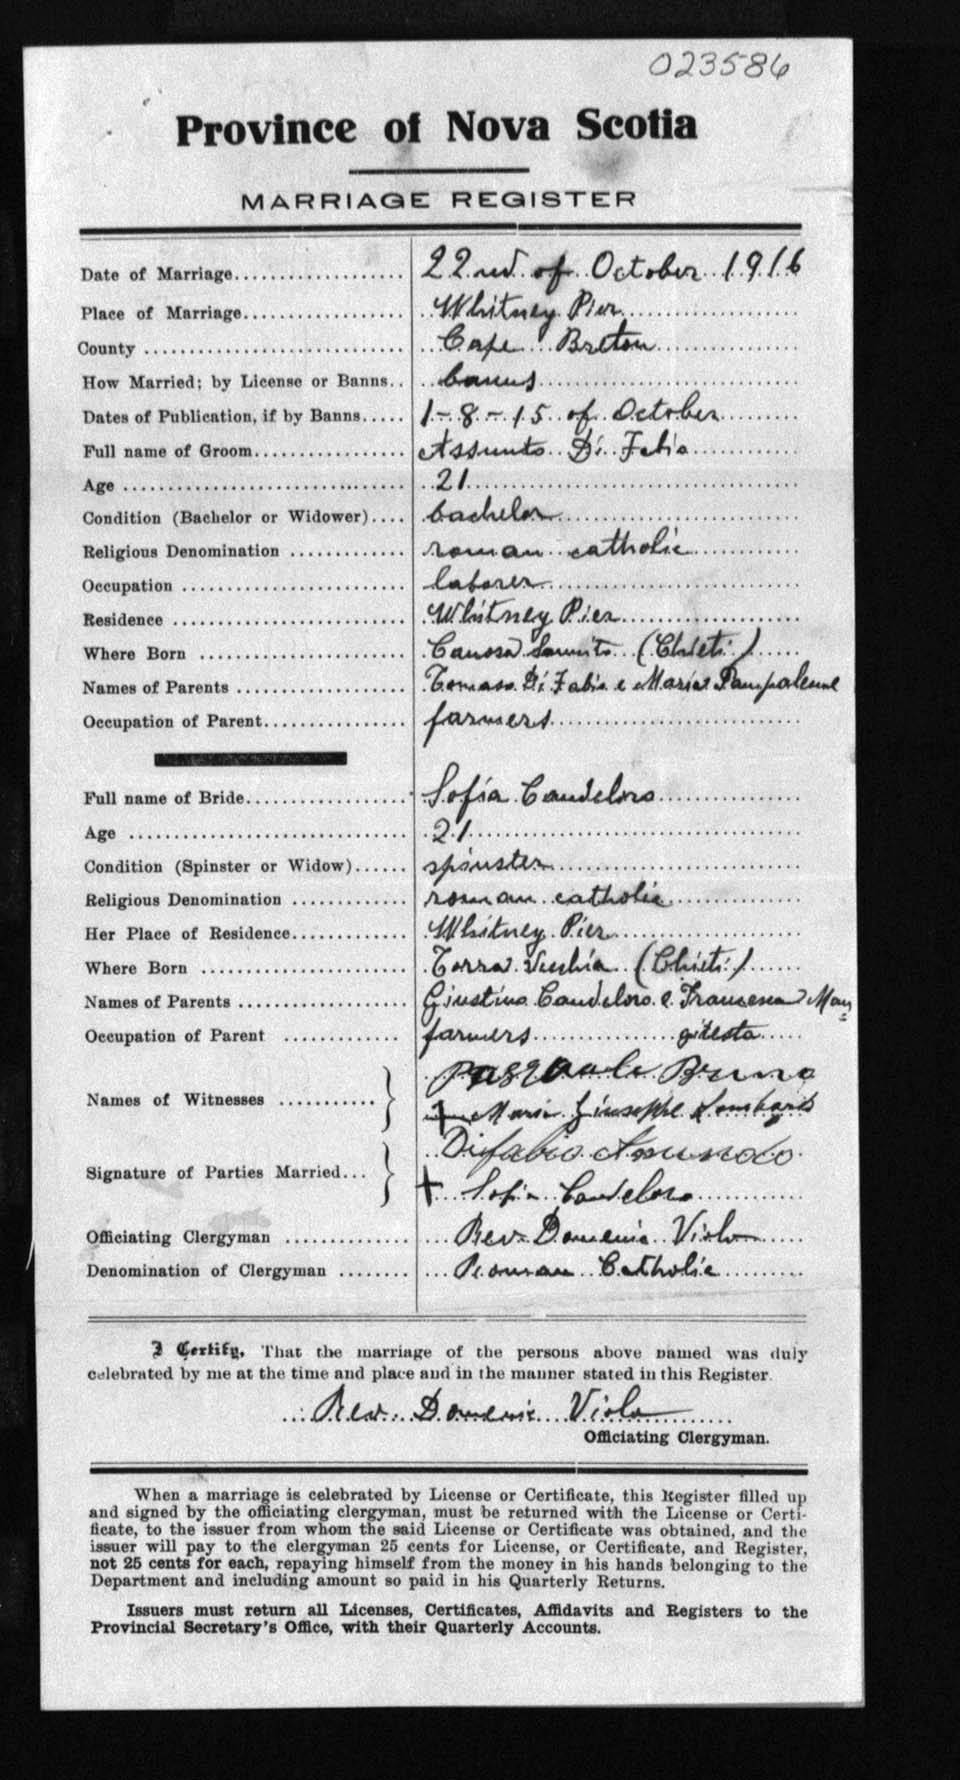 023586
Province of Nova Scotia
MARRIAGE REGISTER
Date of Marriage................... 22nd of October 1916
Place of Marriage.................. Whitney Pier
County ............................. Cape Breton
How Married; by License or Banns.. banns
Dates of Publication, if by Banns..... 1-8-15 of October
Full name of Groom................. Assunto Di Fabio
Age ................................ 21
Condition (Bachelor or Widower).... bachelor
Religious Denomination ............. roman catholic
Occupation ......................... laborer
Residence .......................... Whitney Pier
Where Born ........................ Canosa Sannita (Chieti)
Names of Parents .................. Tomaso Di Fabio e Maria
Occupation of Parent................ farmers
Full name of Bride.................. Sofia Candeloro
Age ................................ 21
Condition (Spinster or Widow)...... spinster
Religious Denomination ............. roman catholic
Her Place of Residence.............. Whitney Pier
Where Born ........................ (Chieti)
Names of Parents ................... Giustino Candeloro e Francesca Man=
Occupation of Parent ............... farmers gitesta
Names of Witnesses ........... } Pasquale Bruno
+ Maria Giuseppe
Signature of Parties Married... } Difabio
+ Sofia Candeloro
Officiating Clergyman .............. Rev. Domenic Viola
Denomination of Clergyman ........ Roman Catholic
I Certify, That the marriage of the persons above named was duly
celebrated by me at the time and place and in the manner stated in this Register.
Rev. Domenic Viola
Officiating Clergyman.
When a marriage is celebrated by License or Certificate, this Register filled up
and signed by the officiating clergyman, must be returned with the License or Certi-
ficate, to the issuer from whom the said License or Certificate was obtained, and the
issuer will pay to the clergyman 25 cents for License, or Certificate, and Register,
not 25 cents for each, repaying himself from the money in his hands belonging to the
Department and including amount so paid in his Quarterly Returns.
Issuers must return all Licenses, Certificates, Affidavits and Registers to the
Provincial Secretary's Office, with their Quarterly Accounts.